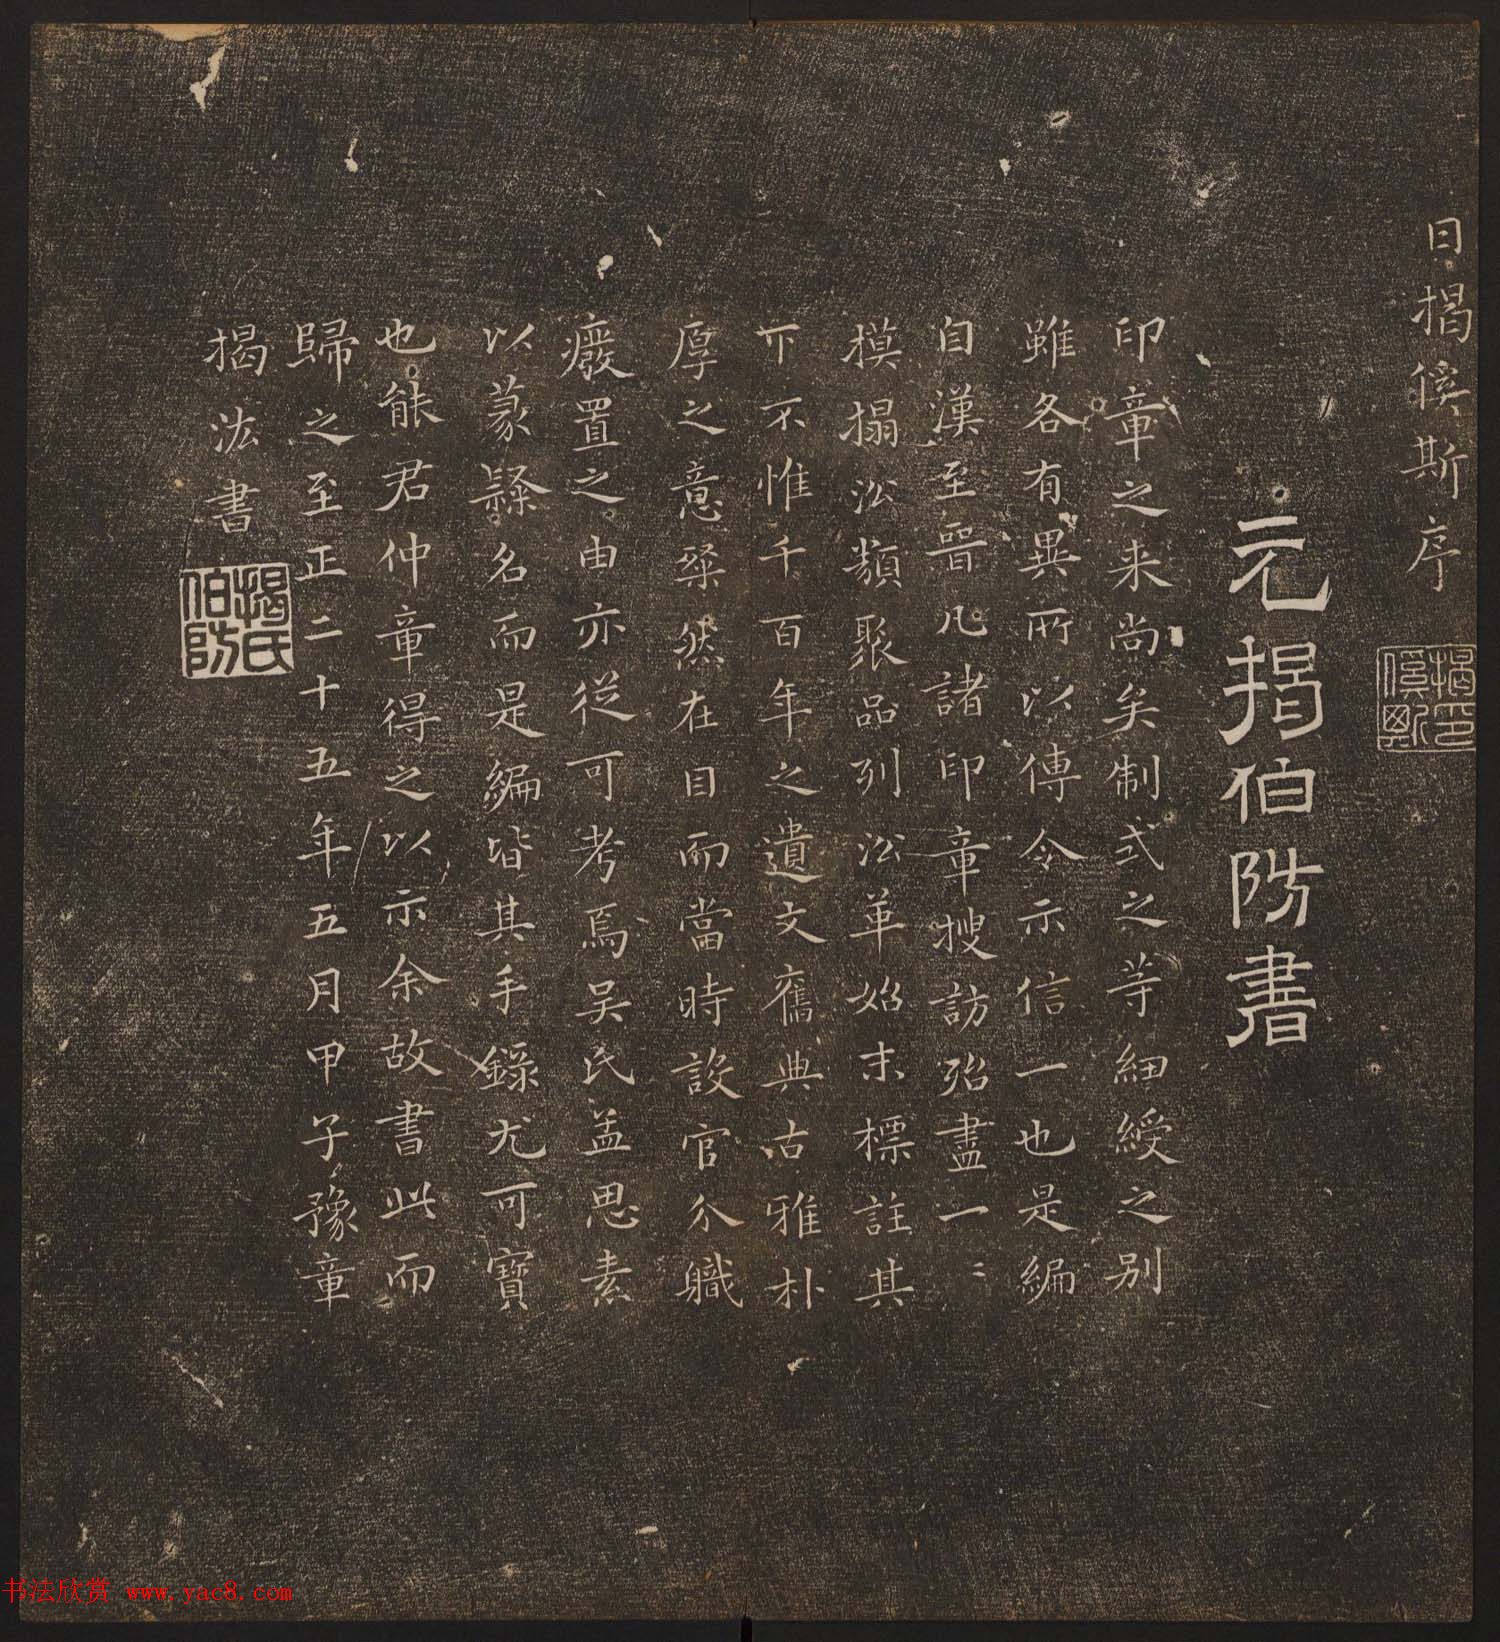 日揭傒斯序
揭傒斯印
元揭伯防書
印章之来尚矣制式之等細綬之别
雖各有異所以傳令示信一也是編
自漢至晉凡諸印章搜訪殆盡一〻
摸搨㳂類聚品列㳂革始末標註其
下不惟千百年之遺文舊典古雅朴
厚之意粲然在目而當時設官分職
癈置之由亦從可考焉吴氏孟思素
以篆隸名而是編皆其手錄尤可寶
也能君仲章得之以示余故書此而
歸之至正二十五年五月甲子豫章
揭汯書
揭氏伯防
书法欣赏 www.yac8.com